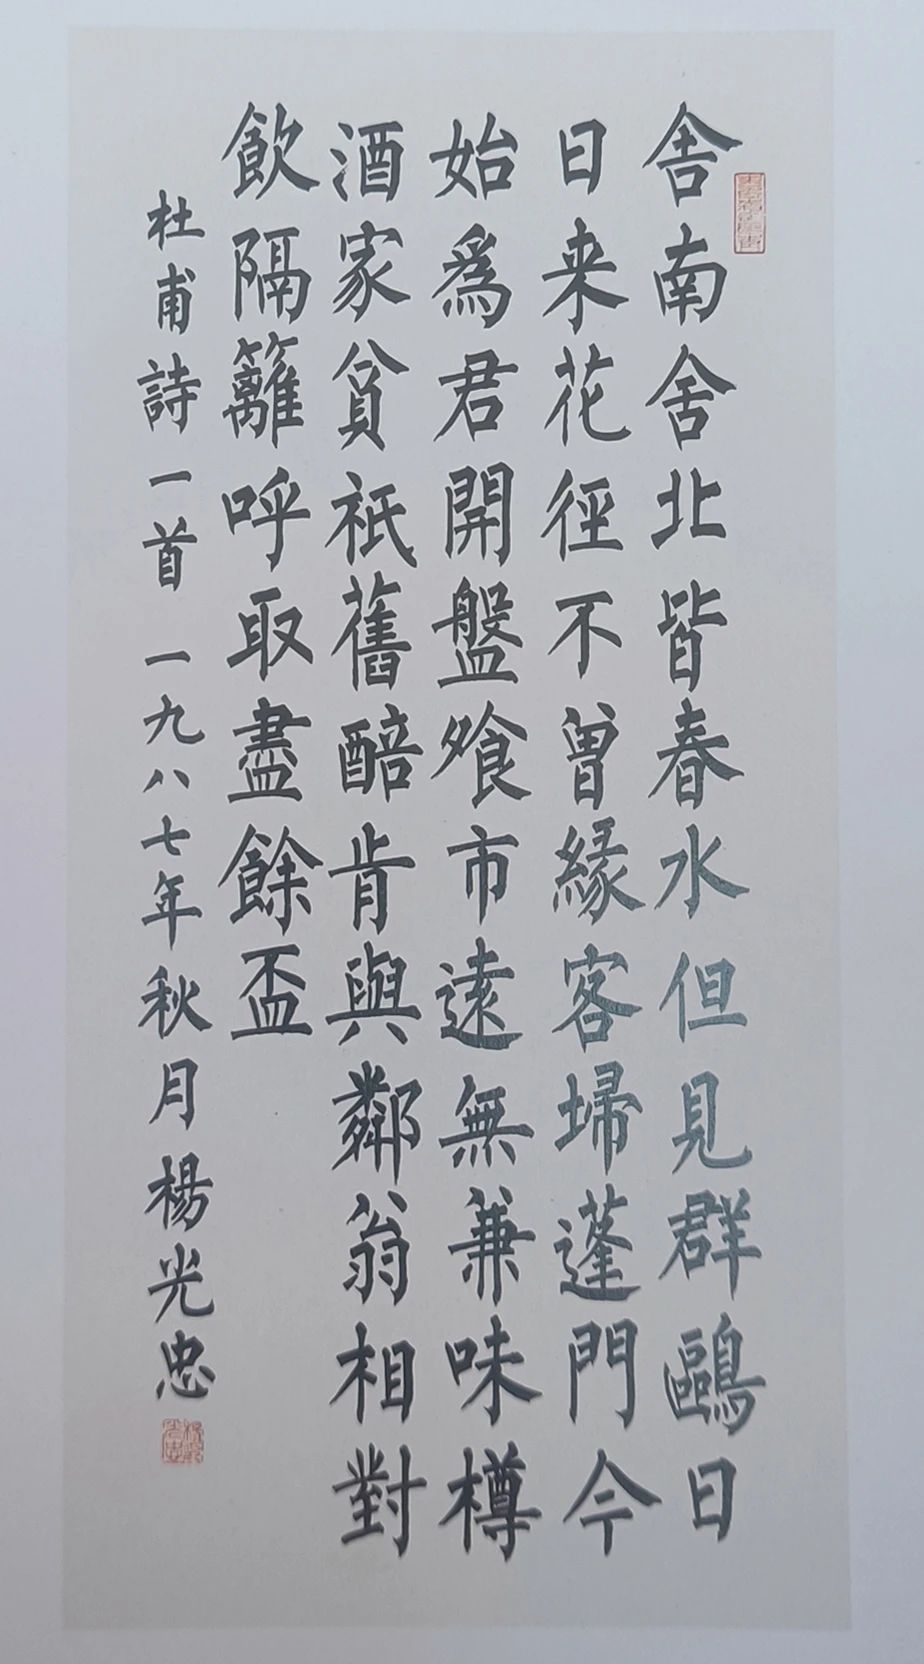 舍南舍北皆春水但見群鷗日
日来花徑不曾緣客掃蓬門今
始為君開盤飧市遠無兼味樽
酒家貧衹舊醅肯與鄰翁相對
飲隔籬呼取盡餘盃
杜甫詩一首一九八七年秋月楊光忠